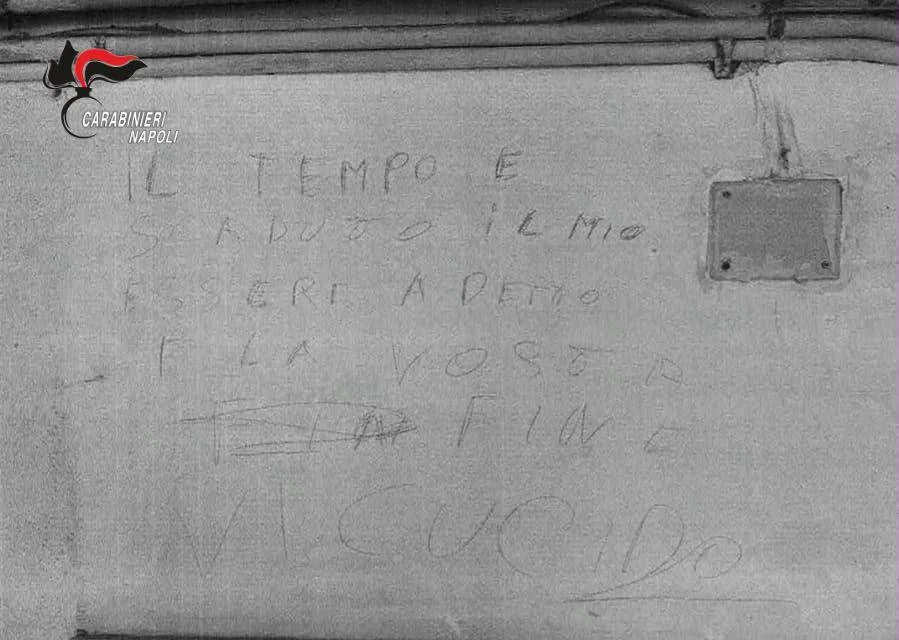 CARABINIERI
NAPOLI
IL TEMPO E
SCADUTO IL MIO
ESSERE A DEMO
E LA VOSTR
FINE
VI CUCIDO